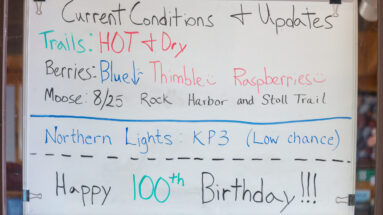 Current Conditions + Updates
Trails: HOT + Dry
Berries: Blue↓ Thimble :) Raspberries :)
Moose: 8/25 Rock Harbor and Stoll Trail
Northern Lights: KP3 (Low chance)
Happy 100th Birthday!!!